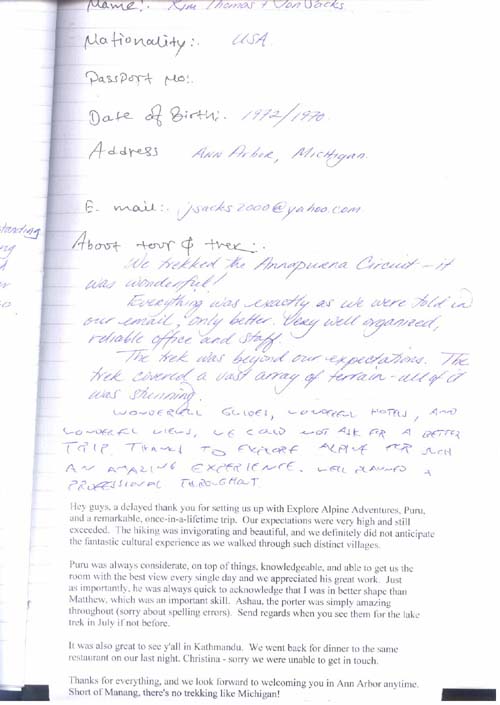 Name:. Kim Thomas + Jon Sacks
Nationality:. USA
Passport No:.
Date of Birth:. 1972/1970
Address Ann Arbor, Michigan
E. mail:. jsacks2000@yahoo.com
About tour & trek:.
We trekked the Annapurna Circuit - it
was wonderful!
Everything was exactly as we were told in
our email, only better. Very well organized,
reliable office and staff.
The trek was beyond our expectations. The
trek covered a vast array of terrain - all of it
was stunning.
WONDERFUL GUIDES, WONDERFUL HOTELS, AND
WONDERFUL VIEWS, WE COULD NOT ASK FOR A BETTER
TRIP. THANKS TO EXPLORE ALPINE FOR SUCH
AN AMAZING EXPERIENCE. WELL PLANNED &
PROFESSIONAL THROUGHOUT
Hey guys, a delayed thank you for setting us up with Explore Alpine Adventures, Puru,
and a remarkable, once-in-a-lifetime trip. Our expectations were very high and still
exceeded. The hiking was invigorating and beautiful, and we definitely did not anticipate
the fantastic cultural experience as we walked through such distinct villages.
Puru was always considerate, on top of things, knowledgeable, and able to get us the
room with the best view every single day and we appreciated his great work. Just
as importantly, he was always quick to acknowledge that I was in better shape than
Matthew, which was an important skill. Ashau, the porter was simply amazing
throughout (sorry about spelling errors). Send regards when you see them for the lake
trek in July if not before.
It was also great to see y'all in Kathmandu. We went back for dinner to the same
restaurant on our last night. Christina - sorry we were unable to get in touch.
Thanks for everything, and we look forward to welcoming you in Ann Arbor anytime.
Short of Manang, there's no trekking like Michigan!